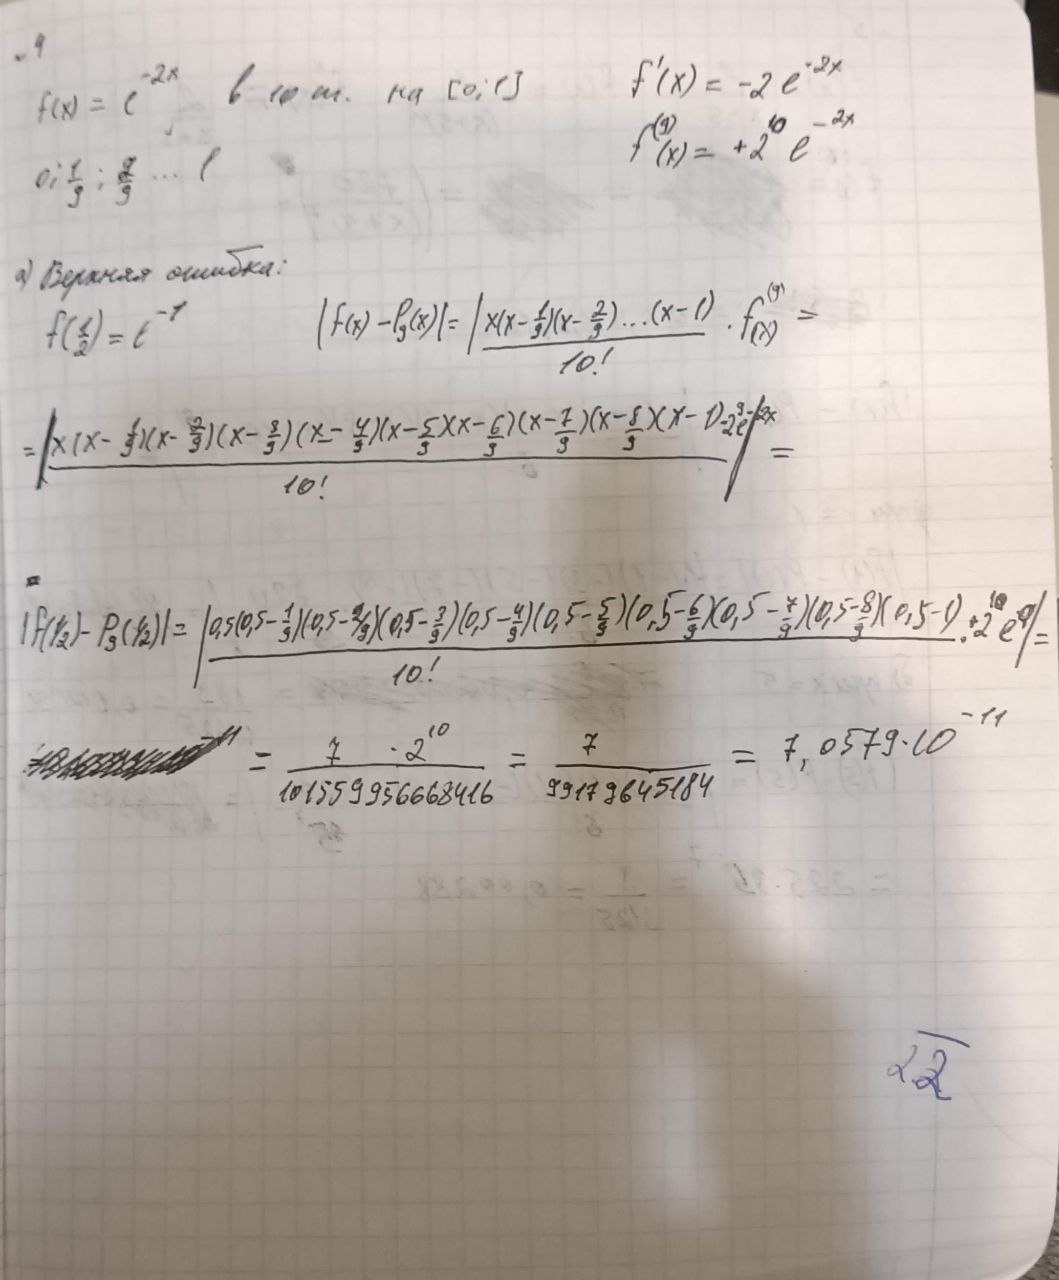 f(x) = e^{-2x} в 10 т. на [0; 1] f'(x) = -2 e^{-2x}
0; 1/9; 2/9 ... 1 f^{(9)}(x) = +2^{10} e^{-2x}
а) Верхняя ошибка:
f(1/2) = e^{-1} |f(x) - P_9(x)| = |x(x - 1/9)(x - 2/9)...(x - 1)/10! · f^{(9)}(x) =
= |x(x - 1/9)(x - 2/9)(x - 3/9)(x - 4/9)(x - 5/9)(x - 6/9)(x - 7/9)(x - 8/9)(x - 1)·-2^9 e^{-2x}/10!| =
|f(1/2) - P_9(1/2)| = |0,5(0,5 - 1/9)(0,5 - 2/9)(0,5 - 3/9)(0,5 - 4/9)(0,5 - 5/9)(0,5 - 6/9)(0,5 - 7/9)(0,5 - 8/9)(0,5 - 1)·+2^{10} e^0/10!| =
= 7 · 2^{10}/101559956668416 = 7/99179645184 = 7,0579·10^{-11}